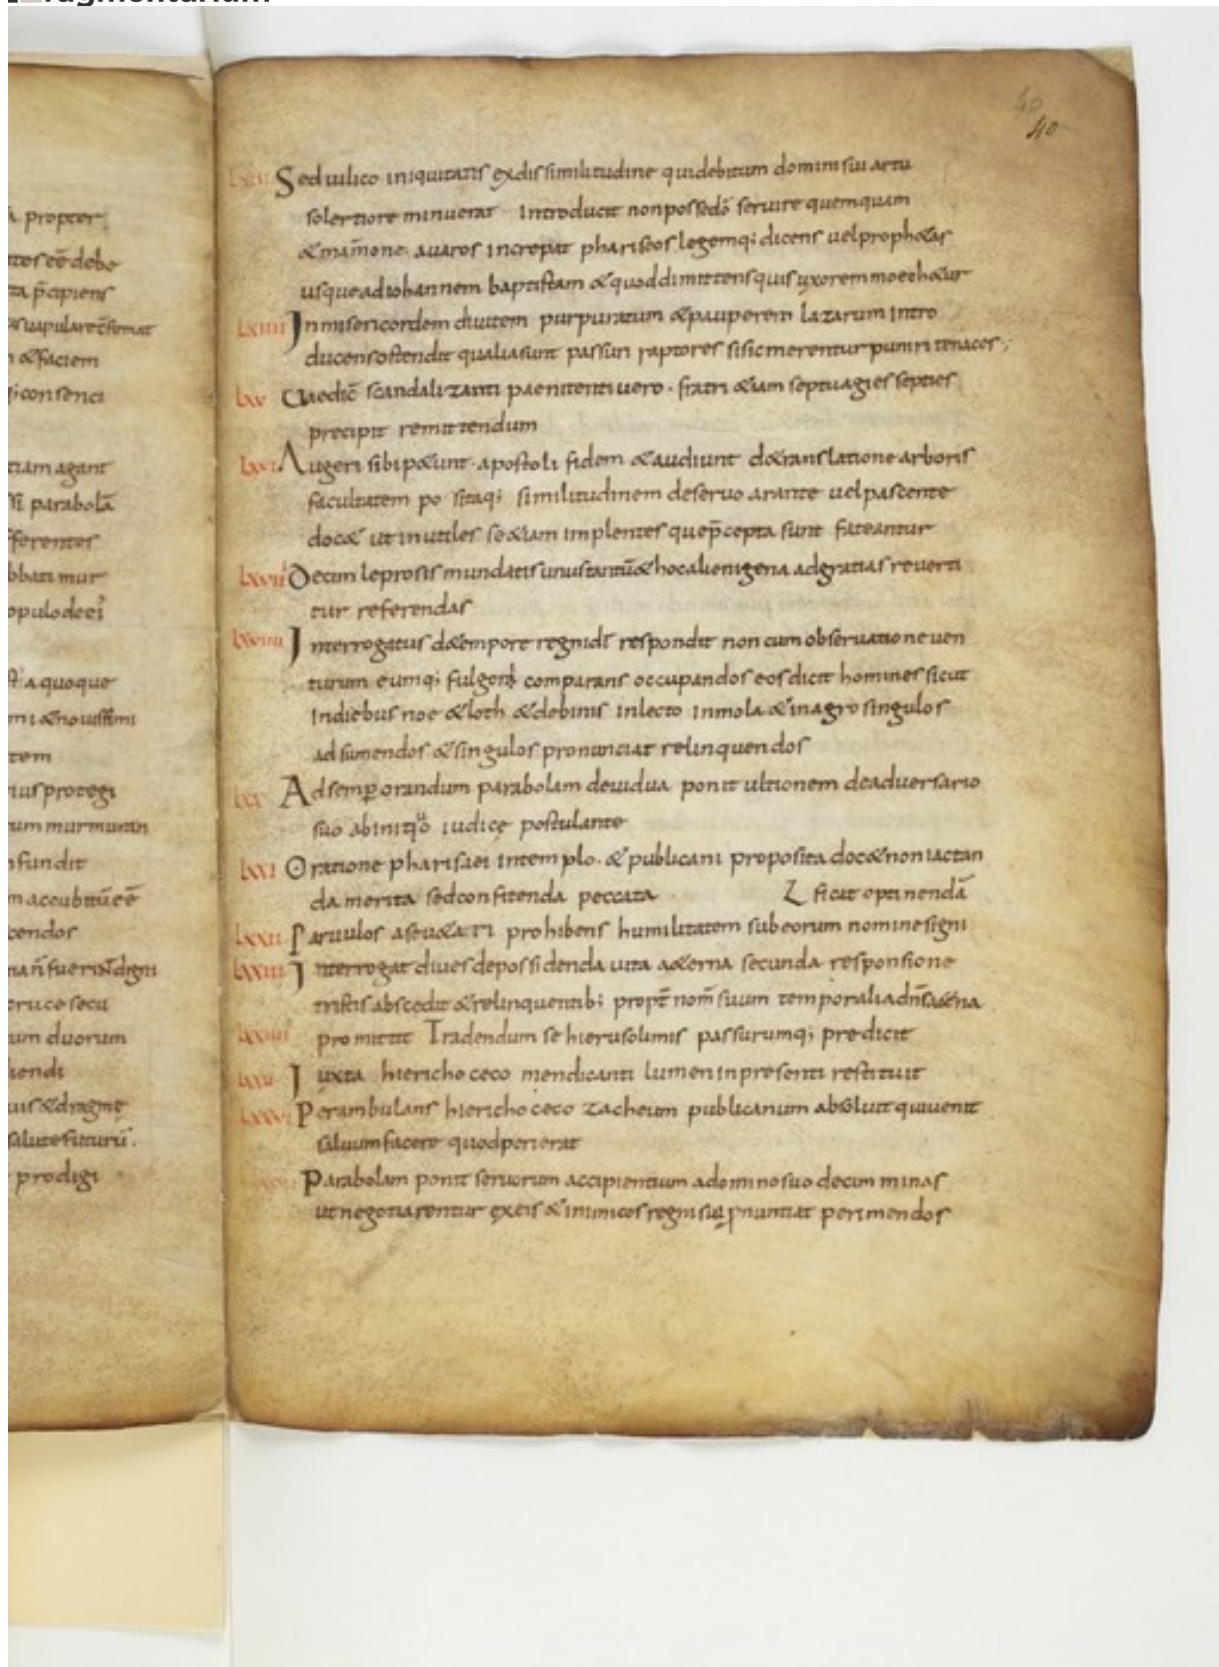 ragmentarium
40
40
a propter
tores eē debe
ta p̄cipiens
n & faciem
tiam agant
si parabolā
fferentes
obati mur
a quoque
tem
ius protegi
um murmuran
n fundit
cendos
cruce secu
um duorum
iendi
salute futurū.
prodigi
Sed uilico iniquitatis ex dissimilitudine qui debitum domini sui actu
solertiore minuerat introducit non posse dō seruire quemquam
& mām̄one. auaros increpat phariseos legemq; dicens uel proph&as
usque ad iohannem baptistam & quod dimittens quis uxorem moech&ur
LXIIII Inmisericordem diuitem purpuratum & pauperem lazarum intro
ducens ostendit qualia sunt passuri raptores si sic merentur puniri tenaces;
LXV Uae dic̄ scandalizanti paenitenti uero. fratri &iam septuagies septies
precipit remittendum
LXVI Augeri sibi p&unt. apostoli fidem & audiunt d& translatione arboris
facultatem po sitaq; similitudinem de seruo arante uel pascente
doc& ut inutiles se &iam implentes que p̄cepta sunt fateantur
LXVII Decim leprosis mundatis unus tantū & hoc alienigena ad gratias reuerti
tur referendas
LXVIIII Interrogatus d& tempore regni dī respondit non cum obseruatione uen
turum eumq; fulgori comparans occupandos eos dicit homines sicut
In diebus noe & loth & de binis in lecto in mola & in agro singulos
ad sumendos & singulos pronunciat relinquendos
LXX Ad semp̄ orandum parabolam de uidua ponit ultionem de aduersario
suo ab iniquo iudice postulante
LXXI Oratione pharisaei in templo. & publicani proposita doc& non iactan
da merita sed confitenda peccata ficat optinendā
LXXII Paruulos a se u&ari prohibens humilitatem sub eorum nomine signi
LXXIII Interrogat diues de possidenda uita a&erna secunda responsione
tristis abscedit & relinquentib; propt̄ nom̄ suum temporalia
LXXIIII promittit Tradendum se hierusolimis passurumq; predicit
LXXV Iuxta hiericho ceco mendicanti lumen in presenti restituit
LXXVI Perambulans hiericho ceco zacheum publicanum absoluit qui uenit
saluum facere quod perierat
Parabolam ponit seruorum accipientium a domino suo decim minas
ut negotiarentur ex eis & inimicos regni sui p̄nuntiat perimendos